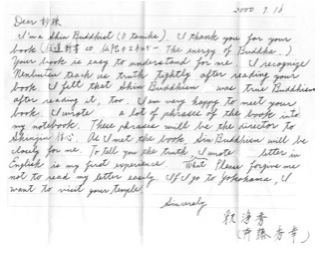 2000. 9. 16
Dear 妙珠
I'm a Shin Buddhist (O tanika). I thank you for your
book (仏の The energy of Buddha.)
Your book is easy to understand for me. I recognize
Nenbutsu teach us truth tightly after reading your
book. I felt that Shin Buddhism was true Buddhism
after reading it, too. I am very happy to meet your
book. I wrote a lot of phrases of the book into
my notebook. These phrases will be the director to
心. As I met the book Sin Buddhism will be
closely for me. To tell you the truth I wrote letter in
English is my first experience. Please forgive me
not to read my letter easily. If I go to Yokohama, I
want to visit your temple
Sincerely
釈浄香